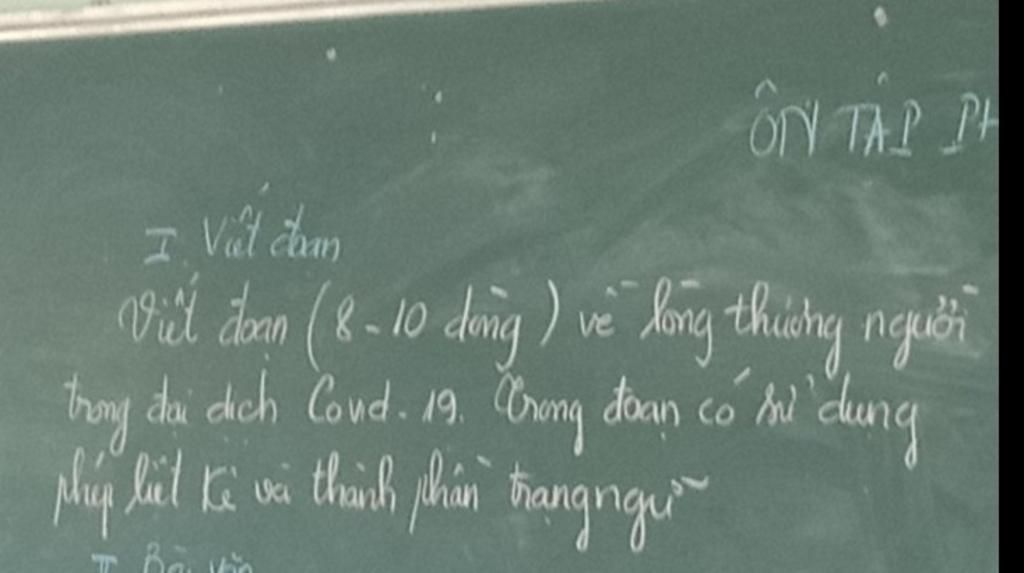 ÔN TẬP PH
I. Viết đoạn
Viết đoạn (8-10 dòng) về lòng thương người
trong đại dịch Covid-19. Trong đoạn có sử dụng
phép liệt kê và thành phần trạng ngữ
II Bài văn